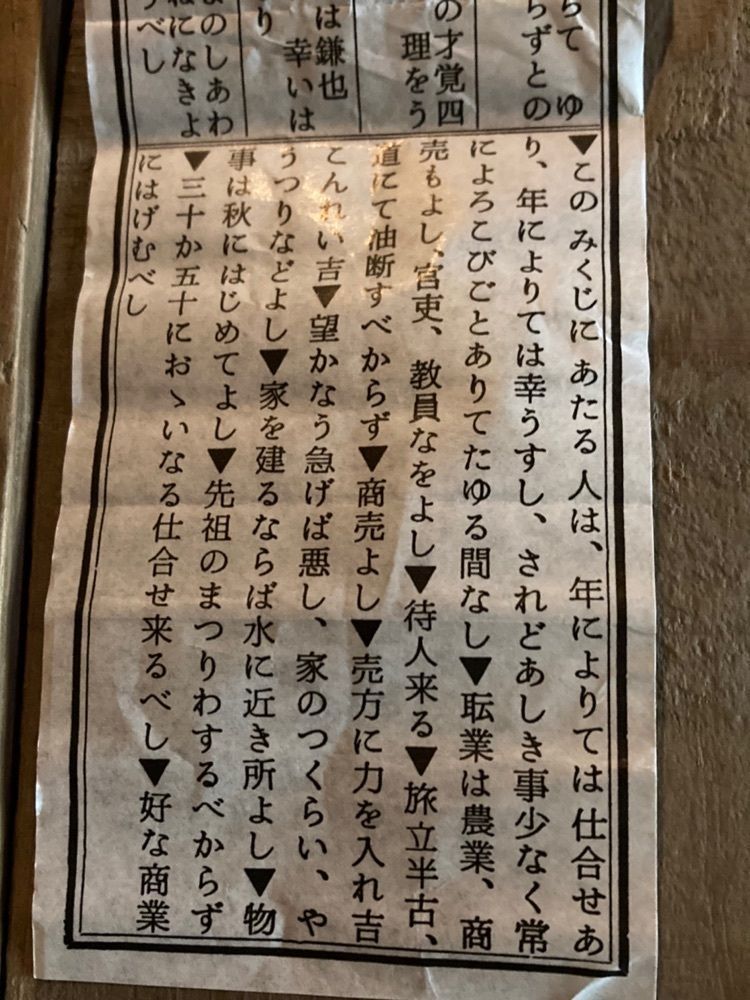 らて　ゆ
らずとの
の才覚四
理をう
は鎌也
幸いは
り
のしあわ
になきよ
べし
▼このみくじに あたる人は、年によりては仕合せあ
り、年によりては幸うすし、されどあしき事少なく常
によろこびごとありてたゆる間なし▼耺業は農業、商
売もよし、官吏、教員なをよし▼待人来る▼旅立半古、
道にて油断すべからず▼商売よし▼売方に力を入れ吉
こんれい吉▼望かなう急げば悪し、家のつくらい、や
うつりなどよし▼家を建るならば水に近き所よし▼物
事は秋にはじめてよし▼先祖のまつりわするべからず
▼三十か五十におゝいなる仕合せ来るべし▼好な商業
にはげむべし